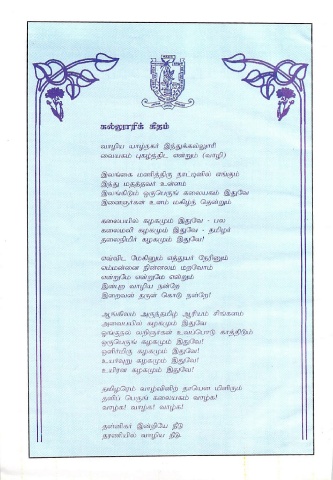 கல்லூரிக் கீதம்
வாழிய யாழ்நகர் இந்துக்கல்லூரி
வையகம் புகழ்ந்திட என்றும் (வாழி)
இலங்கை மணித்திரு நாட்டினில் எங்கும்
இந்து மதத்தவர் உள்ளம்
இலங்கிடும் ஒருபெருங் கலையகம் இதுவே
இளைஞர்கள் உளம் மகிழ்ந் தென்றும்
கலைபயில் கழகமும் இதுவே - பல
கலைமலி கழகமும் இதுவே - தமிழர்
தலைநிமிர் கழகமும் இதுவே!
எவ்விட மேகினும் எத்துயர் நேரினும்
எம்மன்னை நின்னலம் மறவோம்
என்றுமே என்றுமே என்றும்
இன்புற வாழிய நன்றே
இறைவன தருள் கொடு நன்றே!
ஆங்கிலம் அருந்தமிழ் ஆரியம் சிங்களம்
அவைபயில் கழகமும் இதுவே
ஓங்குநல் லறிஞர்கள் உவப்பொடு காத்திடும்
ஒருபெருங் கழகமும் இதுவே!
ஒளிர்மிகு கழகமும் இதுவே!
உயர்வுறு கழகமும் இதுவே!
உயிரன கழகமும் இதுவே!
தமிழரெம் வாழ்வினிற் தாயென மிளிரும்
தனிப் பெருங் கலையகம் வாழ்க!
வாழ்க! வாழ்க! வாழ்க!
தன்னிகர் இன்றியே நீடு
தரணியில் வாழிய நீடு